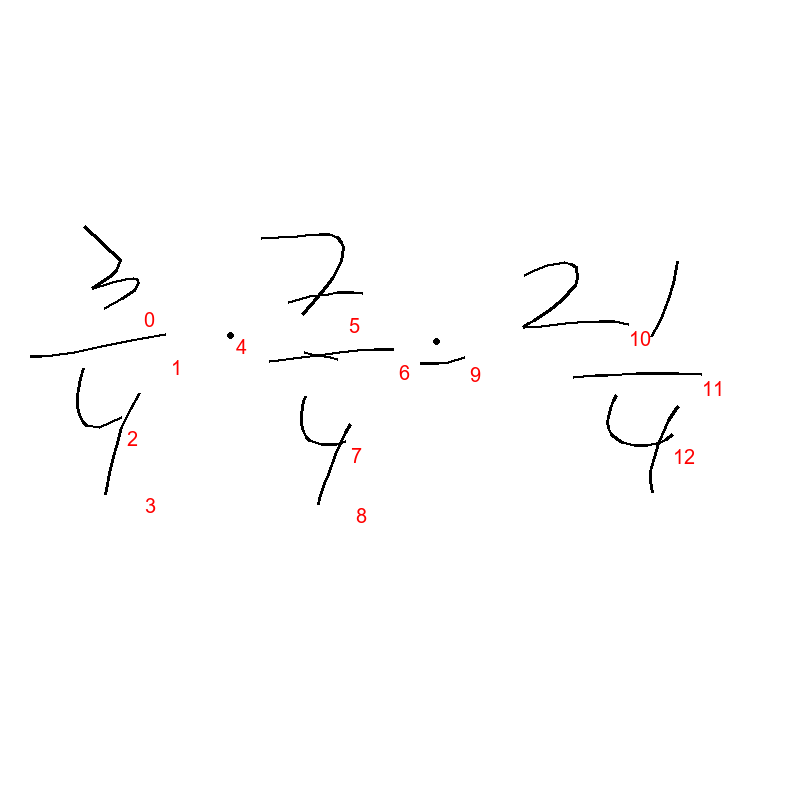 3/4 · 7/4 = 21/4
0 1 2 3 4 5 6 7 8 9 10 11 12